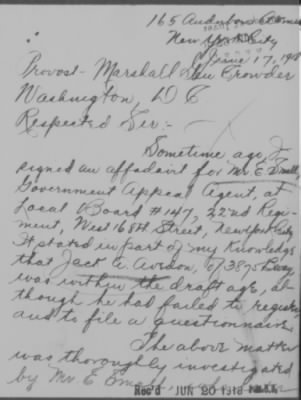 165 Audubon Avenue
New York City
June 17, 1918
Provost-Marshall Gen Crowder
Washington, D C
Respected Sir:-
Sometime ago, I
signed an affadavit for Mr E
Government Appeal Agent, at
Local Board #147, 22nd Regi-
ment, West 168th Street, New York City
It stated in part of my knowledge
that Jack A. Avedon, of 3875 Bway,
was within the draft age, al-
though he had failed to register
and to file a questionnaire.
The above matter
was thoroughly investigated
by Mr. E
Rec'd JUN 20 1918